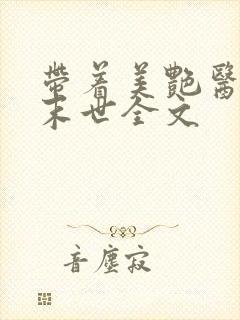 帶着美艷醫
末世全文
音塵寂